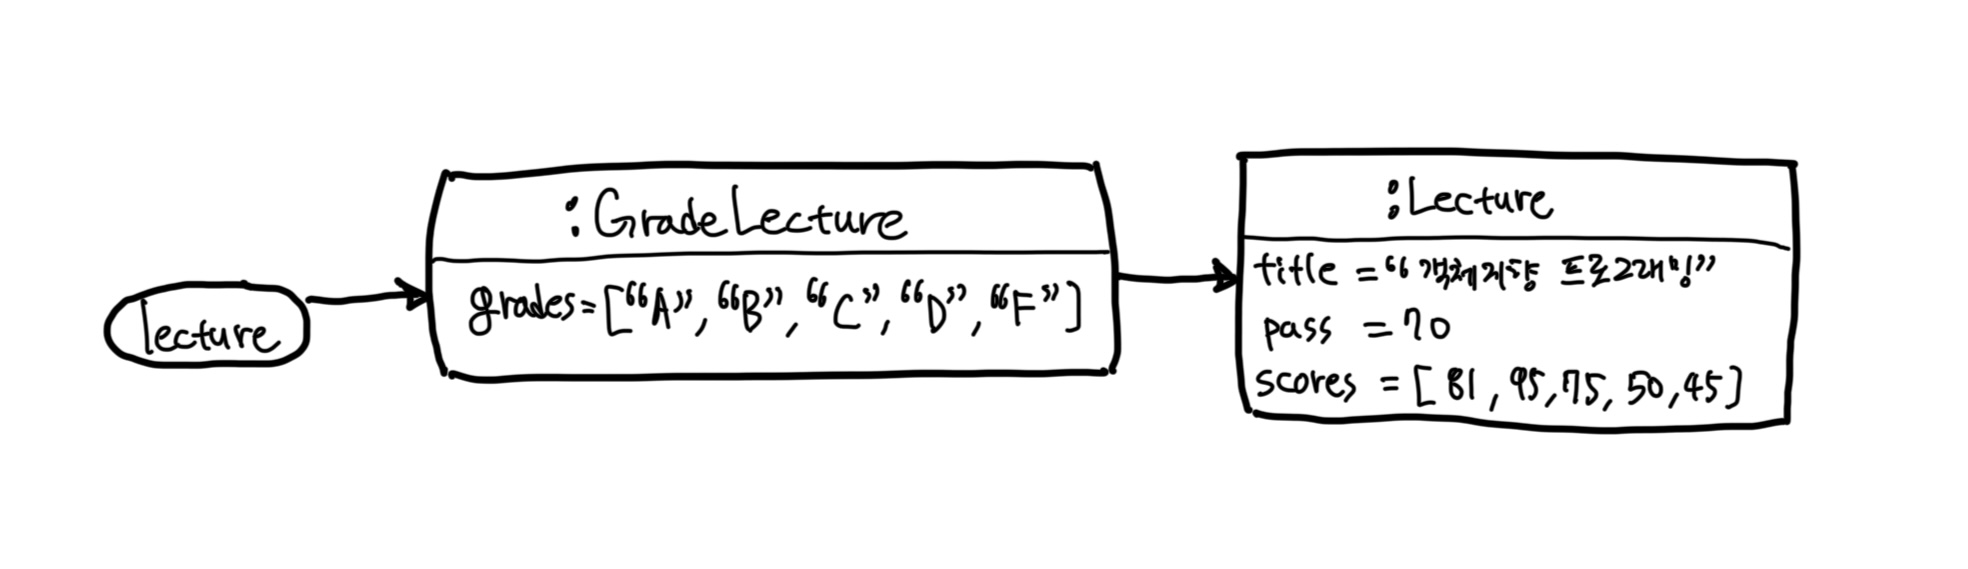 lecture
:GradeLecture
grades=["A", "B", "C", "D", "F"]
:Lecture
title = "객체지향 프로그래밍"
pass = 70
scores = [81, 95, 75, 50, 45]